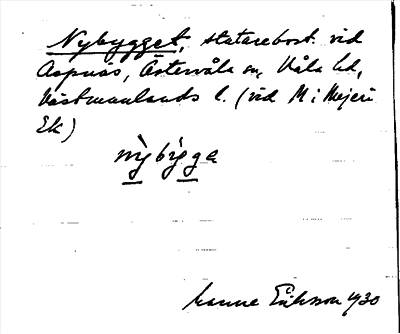 Nybygget, statarebost. vid
Aspnäs, Östervåla sn, Våla hd,
Västmanlands l. (vid M i Mejeri
Ek)
nỳbỳgga
Manne Eriksson 1930